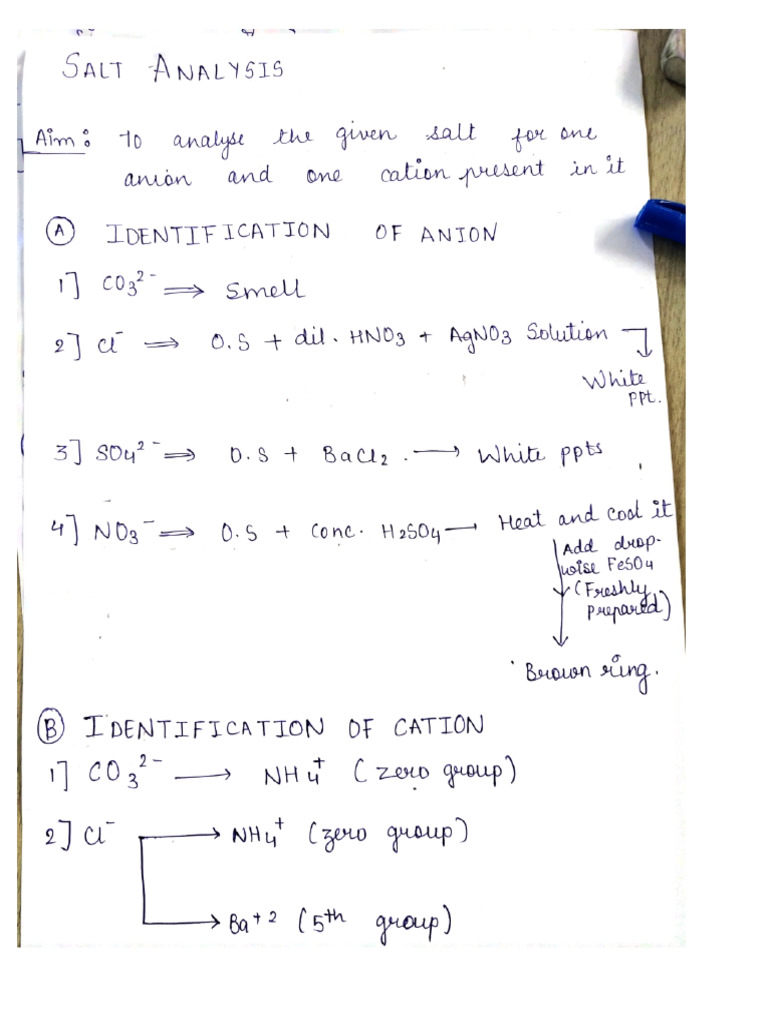 SALT ANALYSIS
Aim: To analyse the given salt for one
anion and one cation present in it
(A) IDENTIFICATION OF ANION
1] CO3²⁻ ⟹ Smell
2] Cl⁻ ⟹ O.S + dil. HNO3 + AgNO3 Solution
White
ppt.
3] SO4²⁻ ⟹ O.S + BaCl2. ⟶ White ppts
4] NO3⁻ ⟹ O.S + Conc. H2SO4 ⟶ Heat and Cool it
Add drop-
wise FeSO4
(Freshly
prepared)
Brown ring.
(B) IDENTIFICATION OF CATION
1] CO3²⁻ ⟶ NH4⁺ (zero group)
2] Cl⁻ ⟶ NH4⁺ (zero group)
⟶ Ba⁺² (5th group)